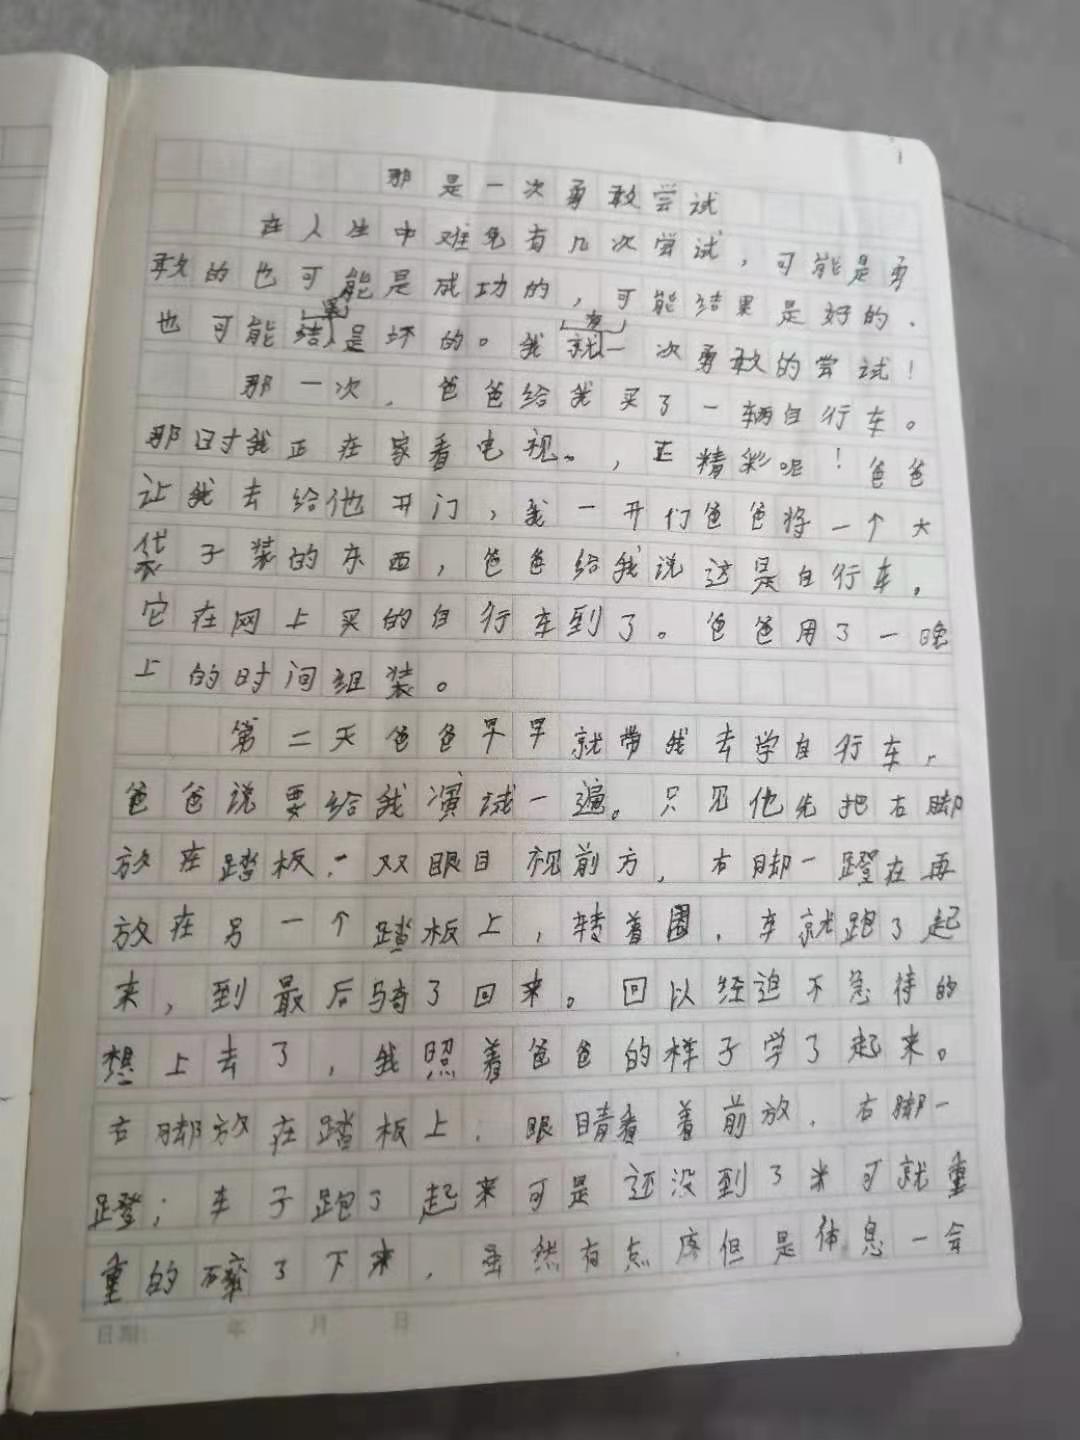 那是一次勇敢尝试
在人生中难免有几次尝试，可能是勇
敢的也可能是成功的，可能结果是好的、
也可能结果是坏的。我就有一次勇敢的尝试！
那一次，爸爸给我买了一辆自行车。
那时我正在家看电视。，正精彩呢！爸爸
让我去给他开门，我一开们爸爸将一个大
袋子装的东西，爸爸给我说这是自行车，
它在网上买的自行车到了。爸爸用了一晚
上的时间组装。
第二天爸爸早早就带我去学自行车，
爸爸说要给我演试一遍。只见他先把右脚
放在踏板，双眼目视前方，右脚一蹬在再
放在另一个踏板上，转着圈，车就跑了起
来，到最后骑了回来。回以经迫不急待的
想上去了，我照着爸爸的样子学了起来。
右脚放在踏板上，眼睛看着前放，右脚一
蹬；车子跑了起来可是还没到了米可就重
重的摔了下来，虽然有点疼但是休息一会
日期： 年 月 日